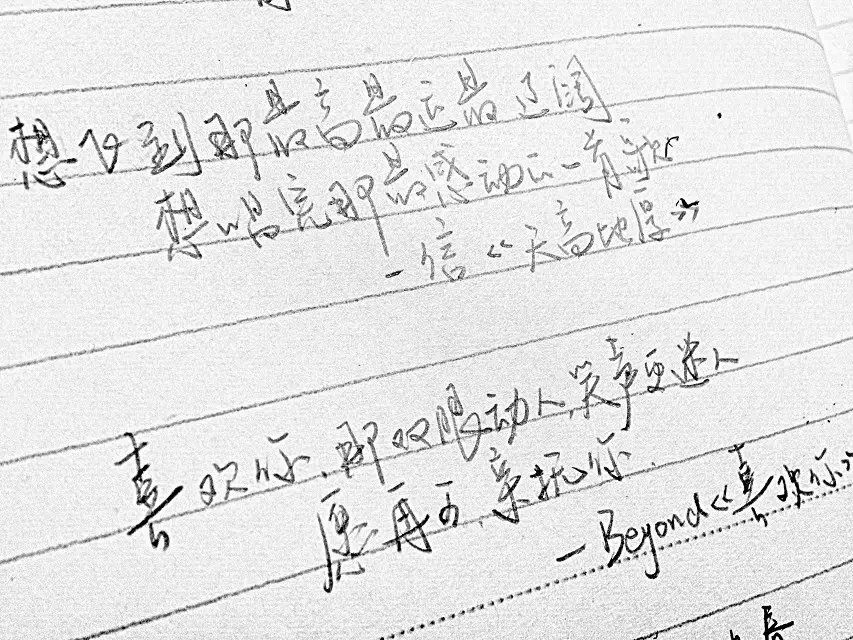 想飞到那最高最远最辽阔
想唱完那最感动的一首歌
—信《天高地厚》
喜欢你,那双眼动人,笑声更迷人
愿再可,亲抚你.
—Beyond《喜欢你》